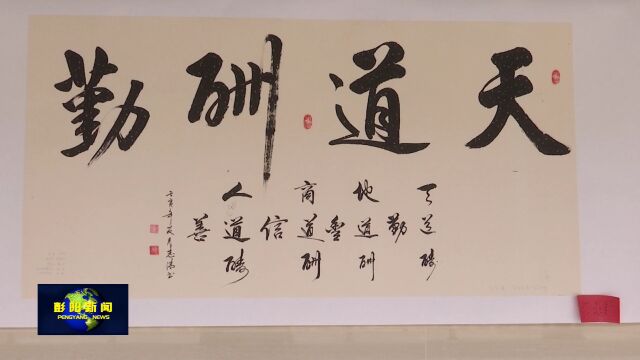 天道酬勤
天道酬
勤
地道酬
商道酬
信
人道酬
善
壬寅年
彭阳新闻
PENGYANG NEWS